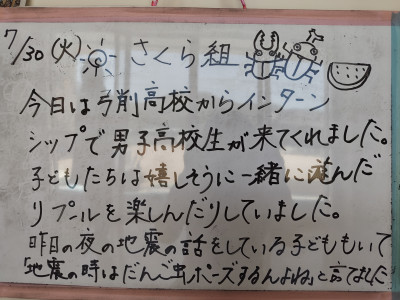 7/30(火) さくら組
今日は弓削高校からインターン
シップで男子高校生が来てくれました。
子どもたちは嬉しそうに一緒に遊んだ
リプールを楽しんだりしていました。
昨日の夜の地震の話をしている子どももいて
「地震の時はだんご虫ポーズするんよね」と言ってました